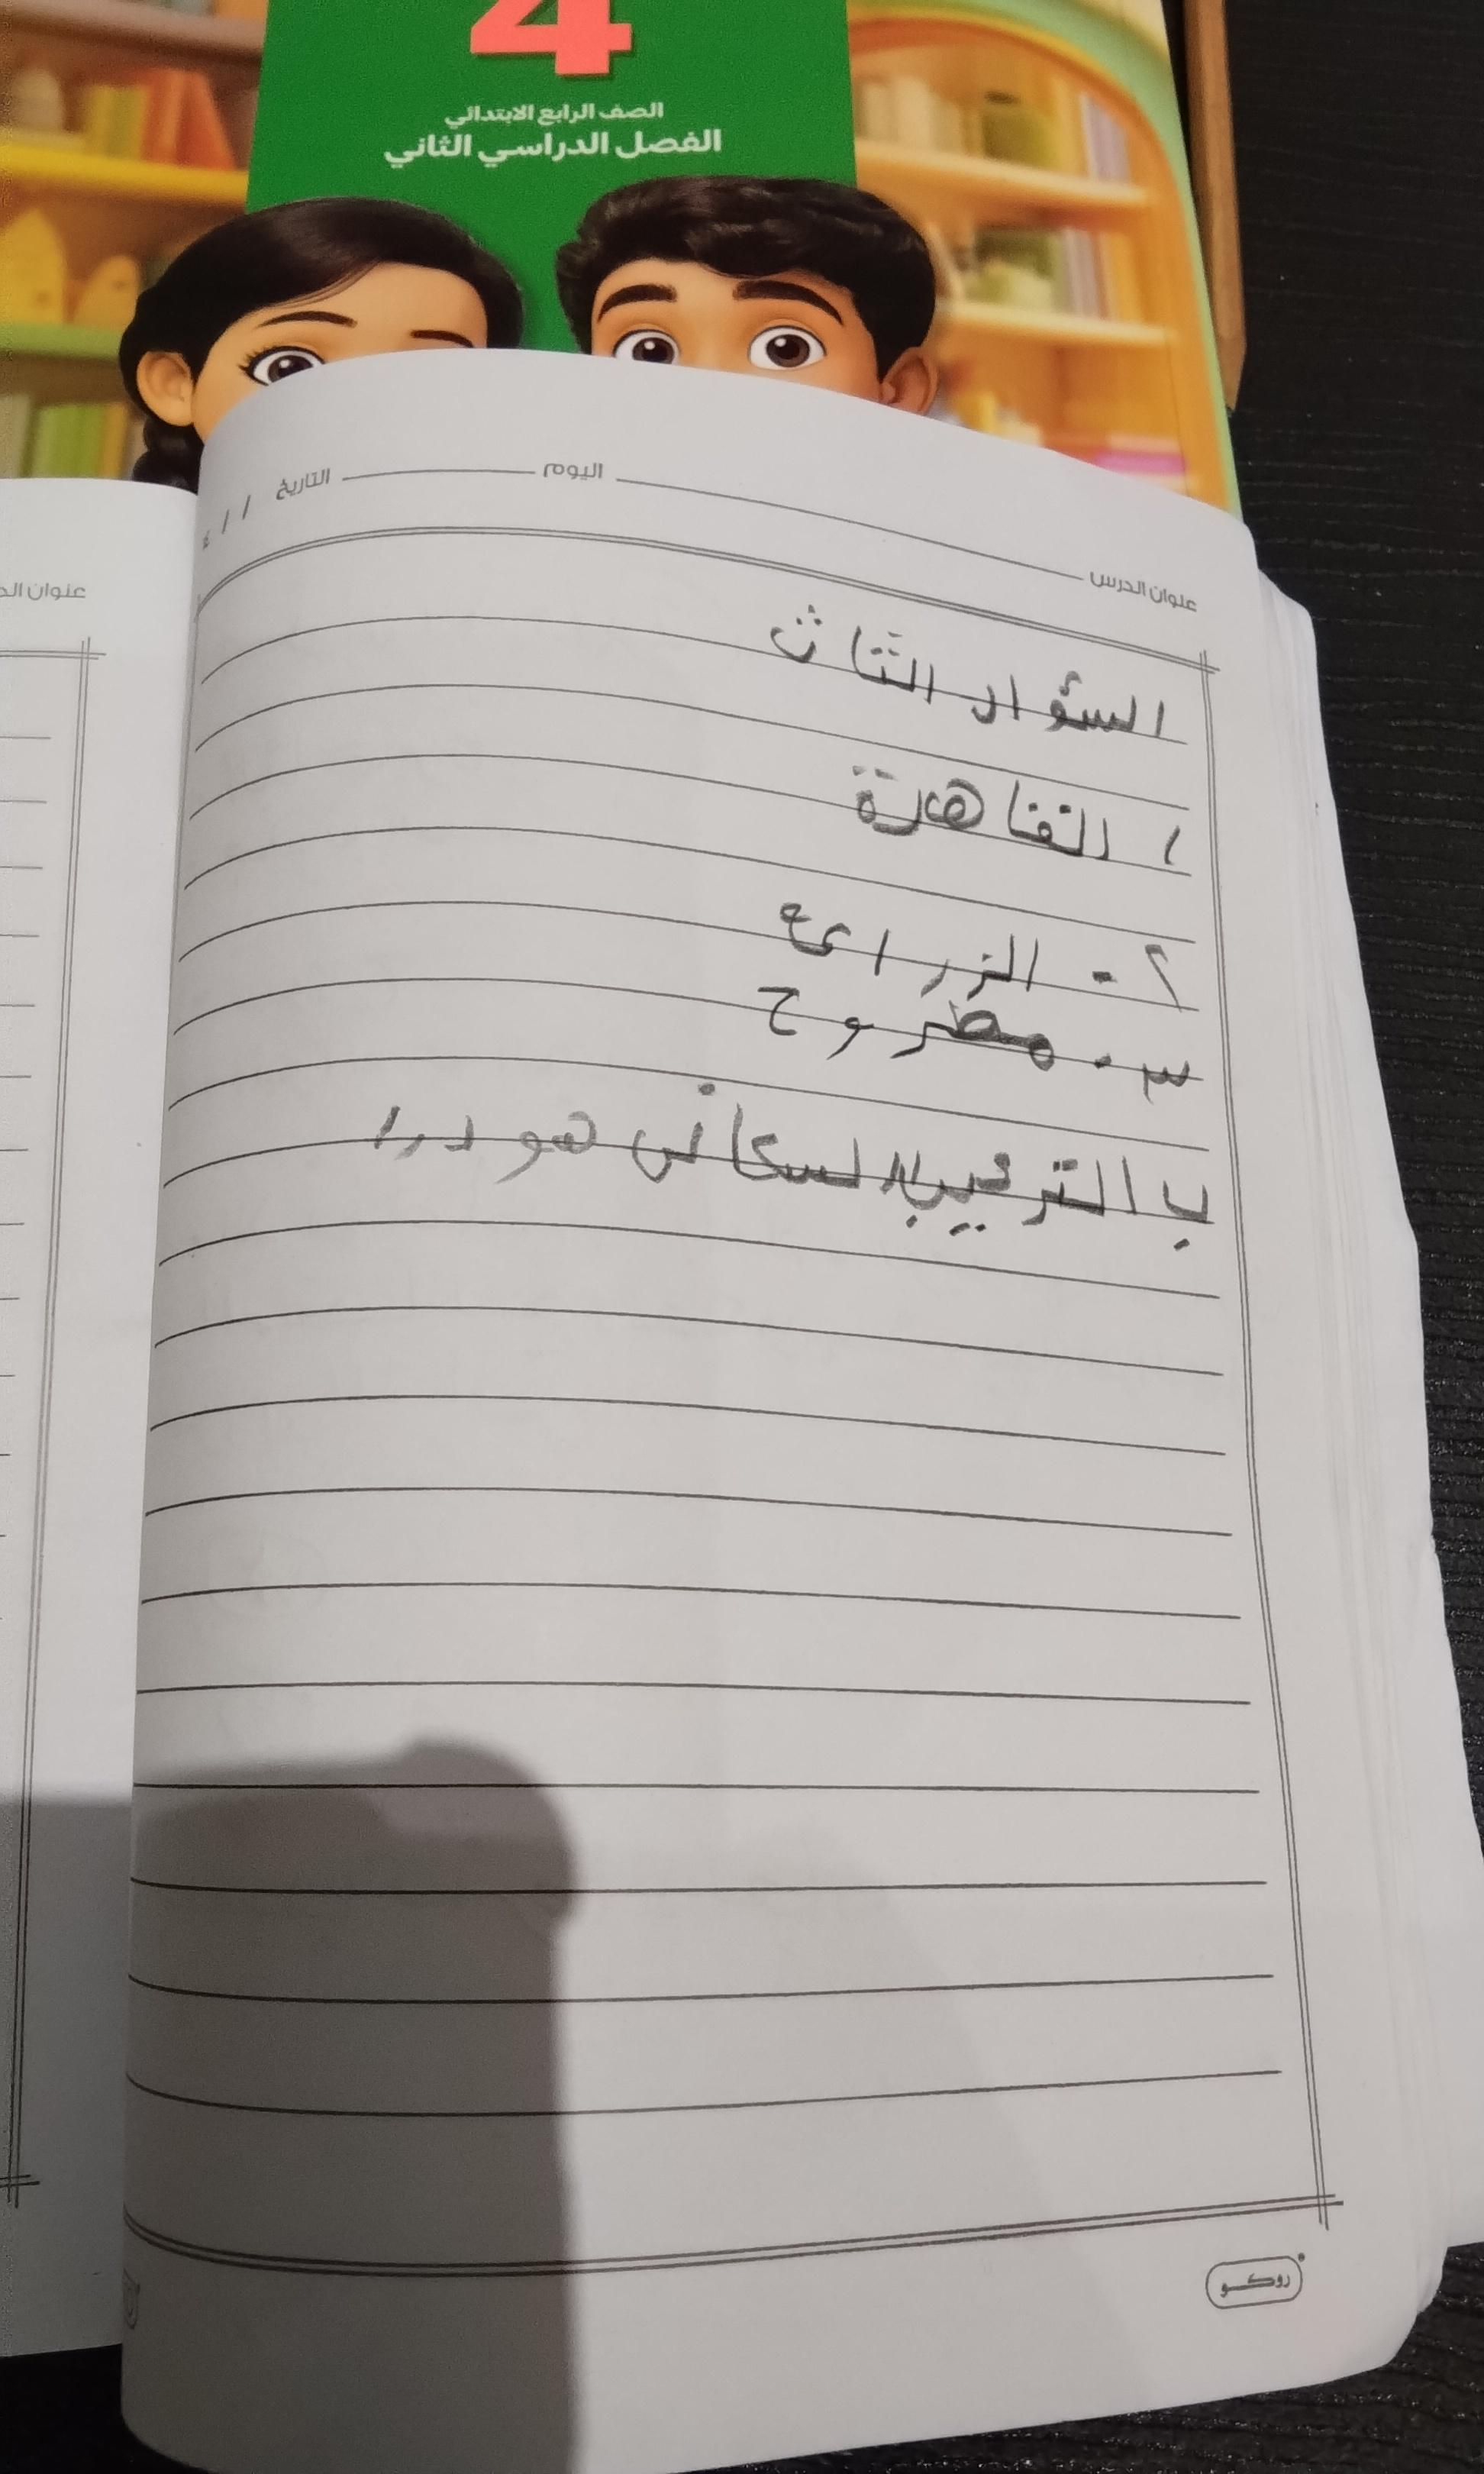 4
الصف الرابع الابتدائي
الفصل الدراسي الثاني
عنوان الدرس اليوم التاريخ / /
السؤال الثاث
١ القاهرة
٢ - الزراعي
٣ - مطروح
ب التركيب السكاني هو درا
عنوان الد
روكو